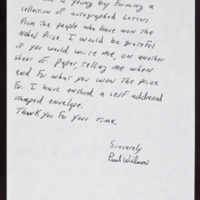 a young boy forming a
collection of autographed Letters
From the people who have won the
Nobel Prize. I would be grateful
if you would write me, on another
sheet of paper, telling me when
and For what you won the Prize
For. I have enclosed a self addressed
stamped envelope.
Thank you For your time.
Sincerely
Paul